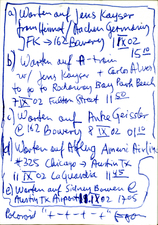 a) Warten auf Jens Kayser
from Himmel / Aachen Germany
JFK → 162 Bowery 1 IX 02
15 10
b) Warten auf A-train
w/ Jens Kayser + Carlos Alves
to go to Rockaway Bay Park Beach
7 IX 02 Fulton Street 11 50
c) Warten auf Antje Geissler
@ 162 Bowery 8 IX 02 01 10
d) Warten auf Abflug Ameri Airline
#325 Chicago → Austin Tx
11 IX 02 LaGuardia 11 45
e) Warten auf Sidney Bowen @
Austin Tx Airport 11 IX 02 1705
Poloroid "+ - + - +"